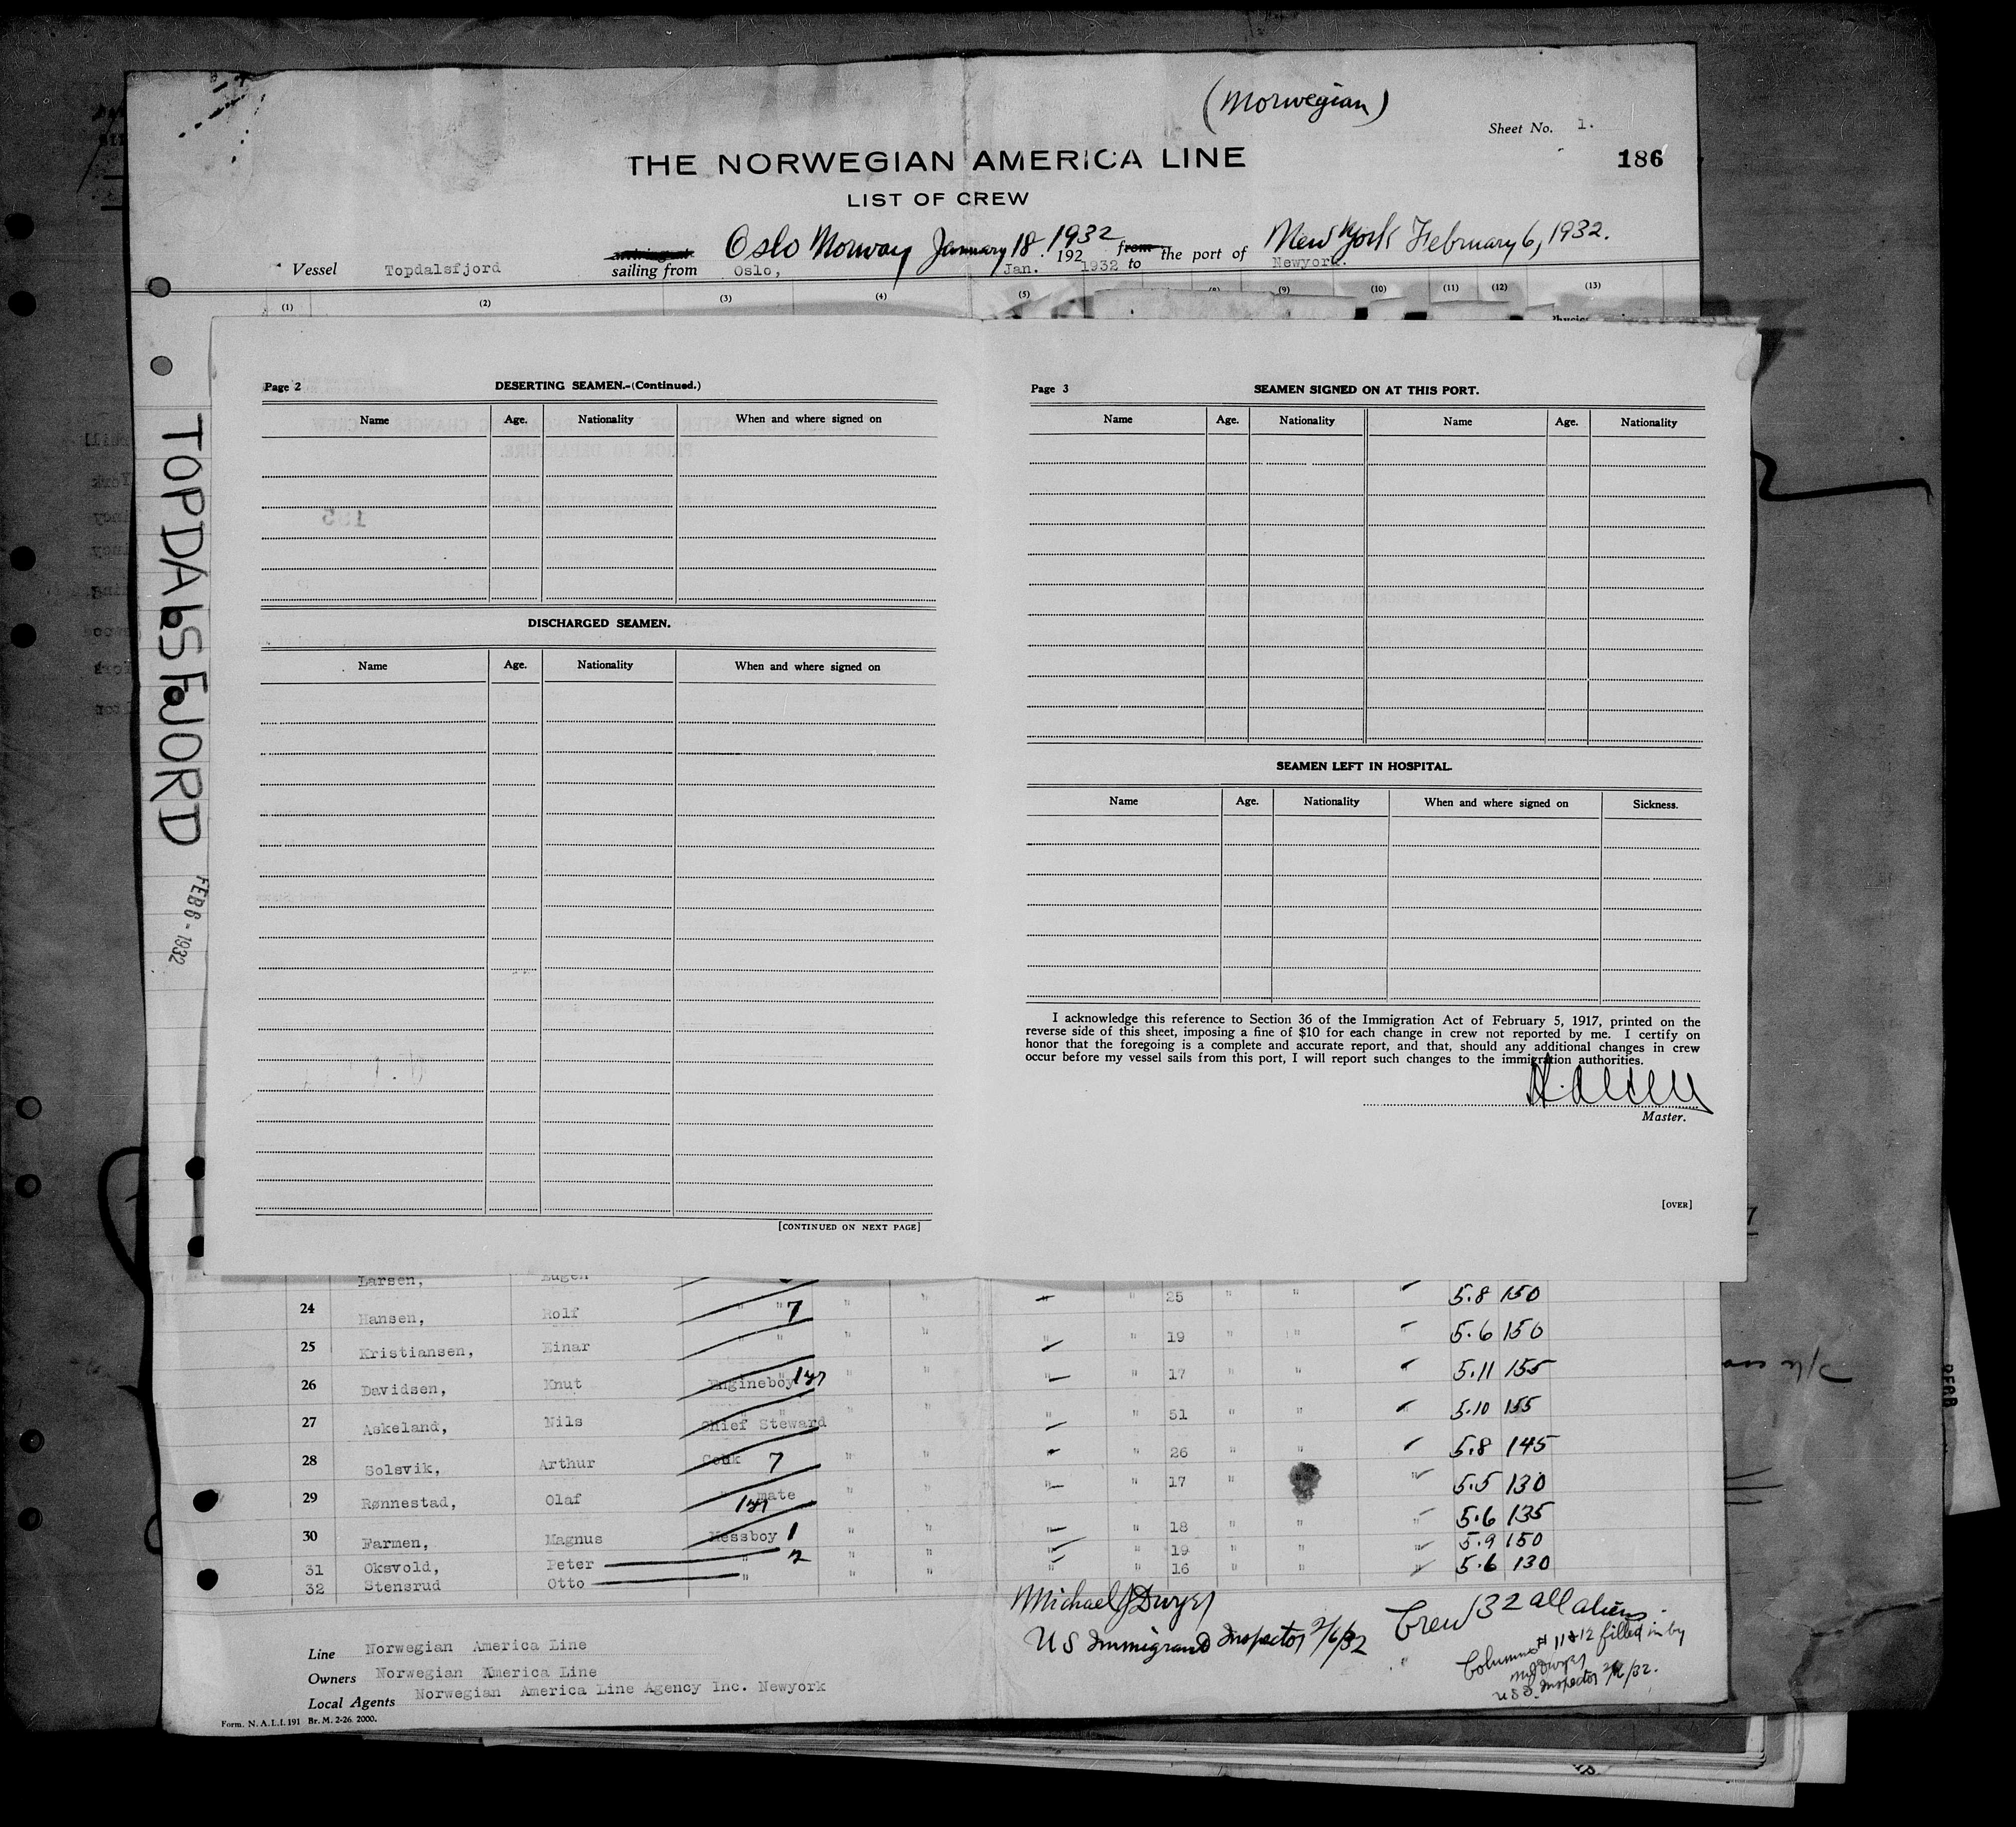 (Norwegian)
Sheet No. 1.
THE NORWEGIAN AMERICA LINE
186
LIST OF CREW
Oslo Norway January 18. 1932 New York February 6, 1932.
Vessel Topdalsfjord sailing from Oslo, Jan. 192 1932 from to the port of Newyork.
(1) (2) (3) (4) (5) (9) (10) (11) (12) (13)
TOPDALSFJORD
FEB 6 - 1932
Page 2 DESERTING SEAMEN.-(Continued.)
Name Age. Nationality When and where signed on
DISCHARGED SEAMEN.
Name Age. Nationality When and where signed on
[CONTINUED ON NEXT PAGE]
Page 3 SEAMEN SIGNED ON AT THIS PORT.
Name Age. Nationality Name Age. Nationality
SEAMEN LEFT IN HOSPITAL.
Name Age. Nationality When and where signed on Sickness.
I acknowledge this reference to Section 36 of the Immigration Act of February 5, 1917, printed on the
reverse side of this sheet, imposing a fine of $10 for each change in crew not reported by me. I certify on
honor that the foregoing is a complete and accurate report, and that, should any additional changes in crew
occur before my vessel sails from this port, I will report such changes to the immigration authorities.
Master.
[OVER]
Larsen, Eugen
24 Hansen, Rolf " " 7 " " " 25 " " 5.8 150
25 Kristiansen, Einar " " " " " 19 " " 5.6 150
26 Davidsen, Knut Engineboy 1yr " " " 17 " " 5.11 155
27 Askeland, Nils Chief Steward " " " " 51 " " 5.10 155
28 Solsvik, Arthur Cook 7 " " " 26 " " 5.8 145
29 Rønnestad, Olaf mate 1yr " " " 17 " 5.5 130
30 Farmen, Magnus Messboy 1 " " " 18 " " " 5.6 135
31 Oksvold, Peter " 2 " " " 19 " " 5.9 150
32 Stensrud Otto " " " " " 16 " " " 5.6 130
Michael J Dwyer
US Immigrand Inspector 2/6/32
Crew 32 all aliens
Columns # 11 & 12 filled in by
MJ Dwyer
U S I. Inspector 2/6/32.
Line Norwegian America Line
Owners Norwegian America Line
Local Agents Norwegian America Line Agency Inc. Newyork
Form. N. A. L. I. 191 Br. M. 2-26. 2000.